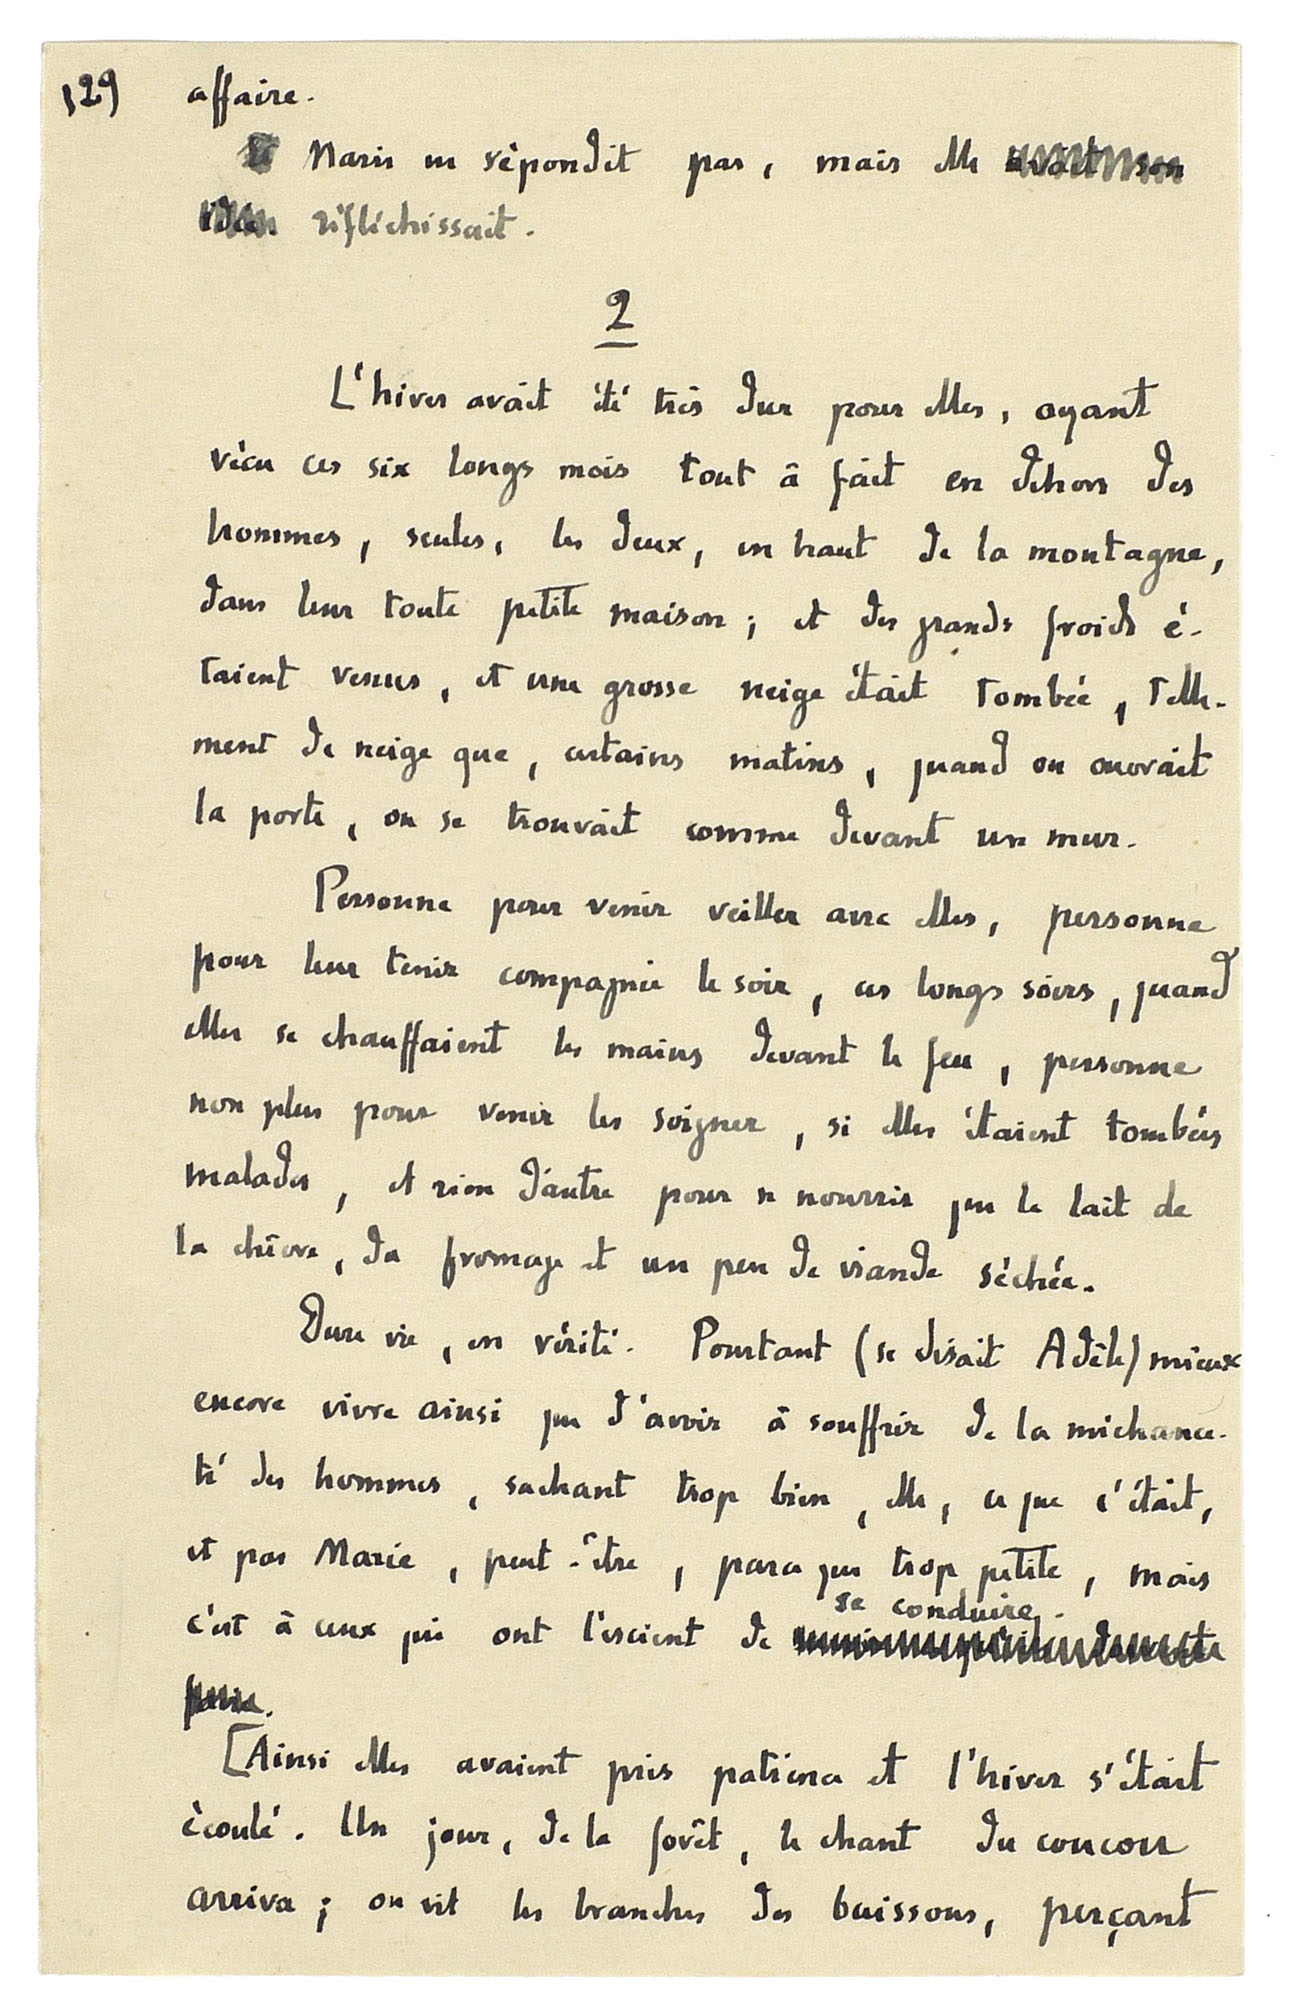 129 affaire.
Marie ne répondit pas, mais elle avait son
idée. réfléchissait.
2
L'hiver avait été très dur pour elles, ayant
vécu ces six longs mois tout à fait en dehors des
hommes, seules, les deux, en haut de la montagne,
dans leur toute petite maison ; et des grands froids é-
taient venus, et une grosse neige était tombée, telle-
ment de neige que, certains matins, quand on ouvrait
la porte, on se trouvait comme devant un mur.
Personne pour venir veiller avec elles, personne
pour leur tenir compagnie le soir, ces longs soirs, quand
elles se chauffaient les mains devant le feu, personne
non plus pour venir les soigner, si elles étaient tombées
malades, et rien d'autre pour se nourrir que le lait de
la chèvre, du fromage et un peu de viande séchée.
Dure vie, en vérité. Pourtant (se disait Adèle) mieux
encore vivre ainsi que d'avoir à souffrir de la méchance-
té des hommes, sachant trop bien, elle, ce que c'était,
et pas Marie, peut-être, parce que trop petite, mais
c'est à ceux qui ont l'escient de se conduire.
[Ainsi elles avaient pris patience et l'hiver s'était
écoulé. Un jour, de la forêt, le chant du coucou
arriva ; on vit les branches des buissons, perçant